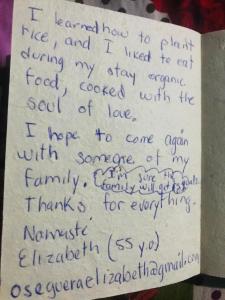 I learned how to plant
rice, and I liked to eat
during my stay organic
food, cooked with the
soul of love.
I hope to come again
with someone of my
family. I'm sure the
family will
Thanks for everything.
Namasté
Elizabeth (55 y.o)
osegueraelizabeth@gmail.com